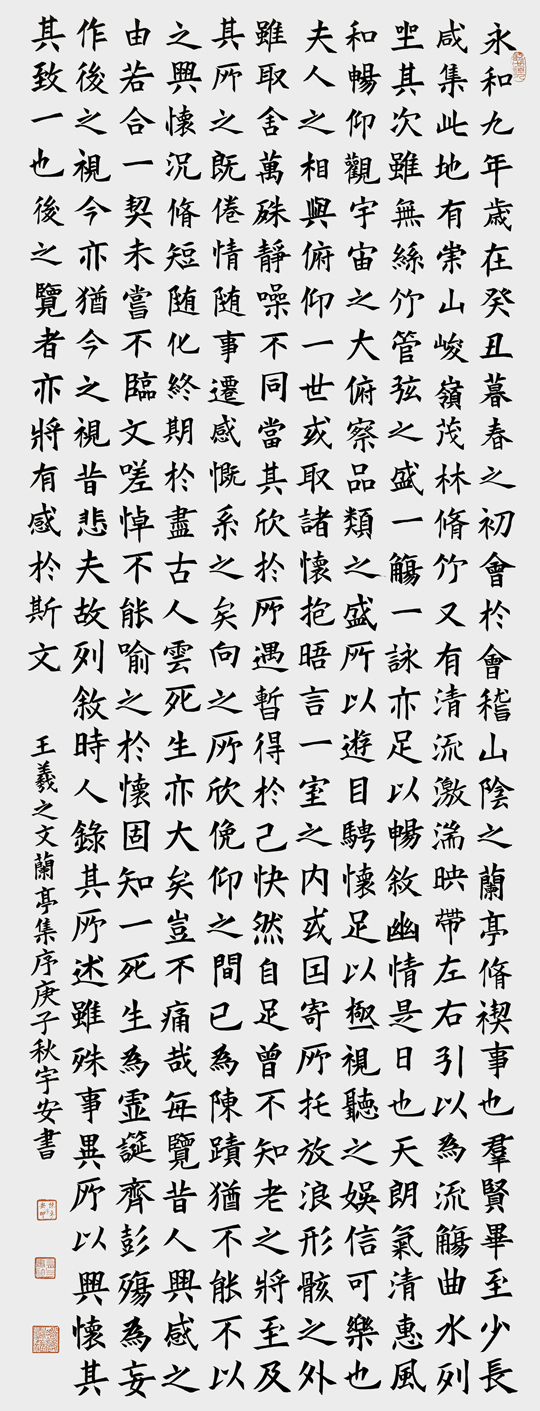 永和九年歲在癸丑暮春之初會於會稽山陰之蘭亭脩禊事也羣賢畢至少長
咸集此地有崇山峻嶺茂林脩竹又有清流激湍映帶左右引以為流觴曲水列
坐其次雖無絲竹管弦之盛一觴一詠亦足以暢敘幽情是日也天朗氣清惠風
和暢仰觀宇宙之大俯察品類之盛所以遊目騁懷足以極視聽之娛信可樂也
夫人之相與俯仰一世或取諸懷抱晤言一室之内或因寄所托放浪形骸之外
雖取舍萬殊靜噪不同當其欣於所遇暫得於己快然自足曾不知老之將至及
其所之既倦情随事遷感慨系之矣向之所欣俛仰之間已為陳蹟猶不能不以
之興懷況脩短随化終期於盡古人雲死生亦大矣豈不痛哉每覽昔人興感之
由若合一契未嘗不臨文嗟悼不能喻之於懷固知一死生為虛誕齊彭殤為妄
作後之視今亦猶今之視昔悲夫故列敘時人錄其所述雖殊事異所以興懷其
其致一也後之覽者亦將有感於斯文
王羲之文蘭亭集序庚子秋宇安書